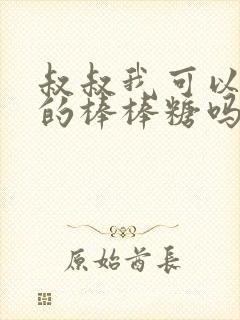 叔叔我可以
的棒棒糖吗
原始酋长